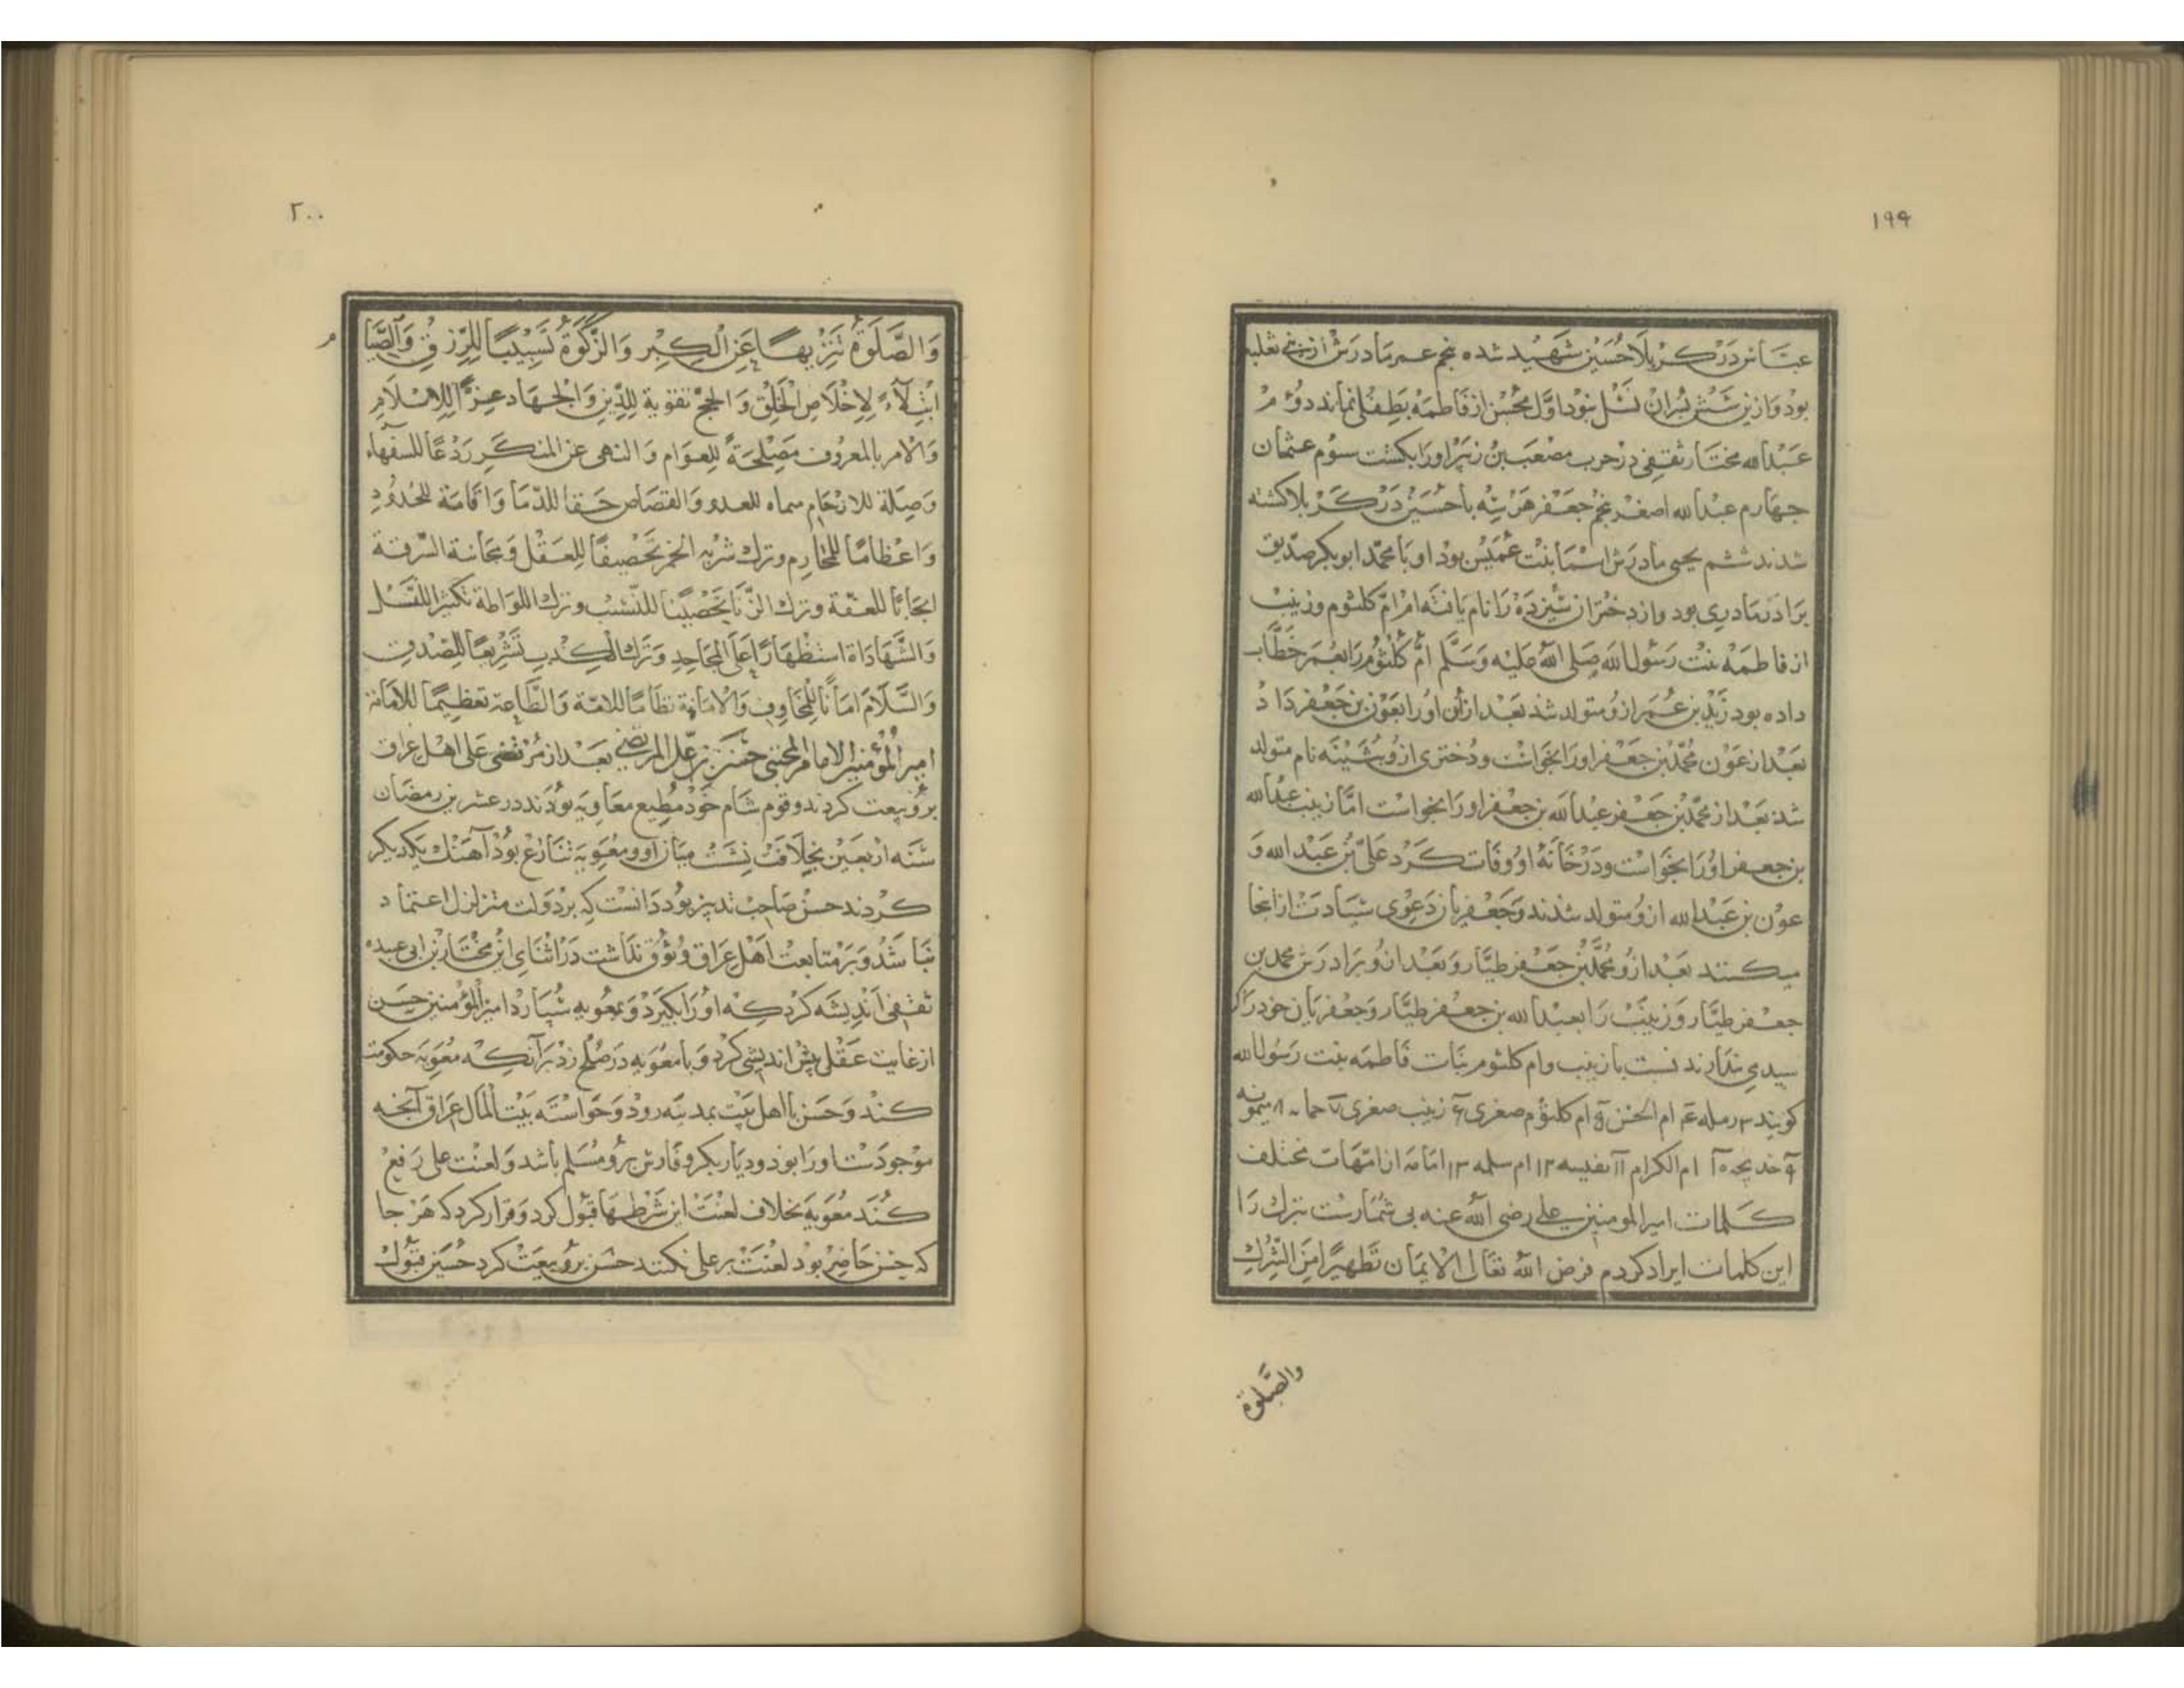 ۱۹۹
عباس در کربلا حسین شهید شده پنجم عمر مادرش از بنی ثعلبه
بود و ازین شش پسران نسل بود اول محسن از فاطمه بطفلی نماند دوم
عبدالله مختار ثقفی در حرب مصعب بن زبیر اورا بکشت سوم عثمان
چهارم عبدالله اصغر پنجم جعفر هر سه با حسین در کربلا کشته
شدند ششم یحیی مادرش اسما بنت عمیس بود او با محمد ابوبکر صدیق
برادر مادری بود و از دختران سیزده را نام یافته ام ام کلثوم و زینب
از فاطمه بنت رسول الله صلی الله علیه وسلم ام کلثوم را بعمر خطاب
داده بود زید بن عمر ازو متولد شد بعد ازان اورا بعون بن جعفر داد
بعد از عون محمد بن جعفر اورا بخواست و دختری ازو بشینه نام متولد
شد بعد از محمد بن جعفر عبدالله بن جعفر اورا بخواست اما زینب عبدالله
بن جعفر اورا بخواست و در خانه او وفات کرد علی بن عبدالله و
عون بن عبدالله ازو متولد شدند و جعفریان دعوی سیادت ازانجا
میکنند بعد ازو محمد بن جعفر طیار و بعد ازو برادرش محمد بن
جعفر طیار و زینب را بعبدالله بن جعفر طیار و جعفریان خود را
سیدی ندارند نسبت با زینب و ام کلثوم بنات فاطمه بنت رسول الله
کویند ۳ رمله ۴ ام الحسن ۵ ام کلثوم صغری ۶ زینب صغری ۷ ۸ میمونه
۹ خدیجه ۱۰ ام الکرام ۱۱ نفیسه ۱۲ ام سلمه ۱۳ امامه از امهات مختلف
کلمات امیر المومنین علی رضی الله عنه بی شمارست تبرک را
این کلمات ایراد کردم فرض الله تعالی الایمان تطهیرا من الشرک
والصلوة
۲۰۰
وَالصَّلَوةُ تَنزیها عَنِ الکِبر وَالزَّکوةُ تَسبیبا للرّزق وَالصِّیا م
ابتلاءً لاخلاص الخلق و الحج تقویة للدین و الجهاد عزا للاسلام
والامر بالمعروف مصلحة للعوام والنهی عن المنکر ردعا للسفهاء
وصلة للارحام للعدد والقصاص حقنا للدما واقامة للحدود
واعظاما للمحارم وترک شرب الخمر تحصیفا للعقل ومجانة السرقة
ایجابا للعفة وترک الزنا تحصینا للنسب وترک اللواطة تکثیرا للنسل
والشهاداة استظهارا علی المجاحد وترک الکذب تشریفا للصدق
والسلام امانا للمخاوف والامانة نظاما للامة والطاعة تعظیما للامانة
امیر المؤمنین الامام المجتبی حسن بن علی المرتضی بعد از مرتضی علی اهل عراق
برو بیعت کردند و قوم شام خود مطیع معاویه بودند در عشرین رمضان
سنه اربعین بخلافت نشست میان او و معویه تنازع بود آهنک یکدیکر
کردند حسن صاحب تدبیر بود دانست که بر دولت متزلزل اعتماد
نباشد و بر متابعت اهل عراق وثوق نداشت در اثنای این مختار بن ابی عبیده
ثقفی اندیشه کرد که اورا بکیرد و بمعویه سپارد امیر المؤمنین حسن
از غایت عقل پیش اندیشی کرد و با معویه در صلح زد بر آنکه معویه حکومت
کند و حسن با اهل بیت بمدینه رود و خواسته بیت المال عراق آنچه
موجودست اورا بود و دیار بکر و فارس برو مسلم باشد و لعنت علی رفع
کند معویه بخلاف لعنت این شرطها قبول کرد و قرار کرد که هر جا
که حسن حاضر بود لعنت بر علی نکنند حسن برو بیعت کرد حسین قبول